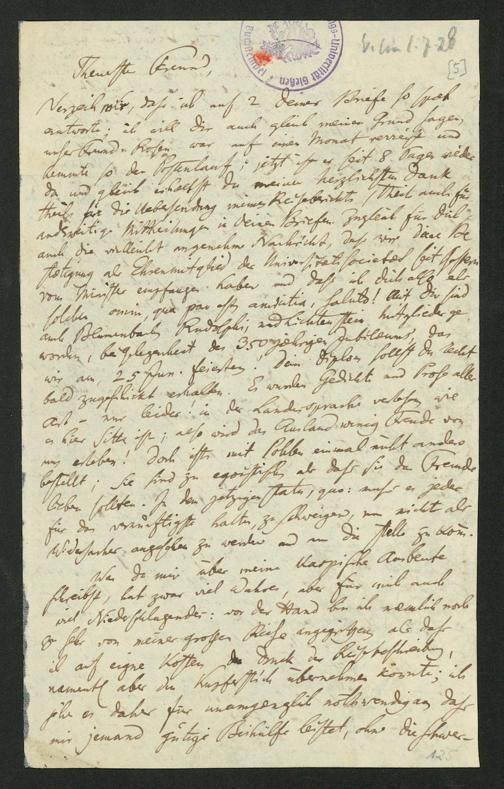 Wilna 1.7.28
[5]
Theuerster Freund,
Verzeih mir, daß ich auf 2 Deiner Briefe so spät
antworte; ich will Dir auch gleich meinen Grund sagen,
unser Freund war auf einen Monat verreist und
hemmte so den Postenlauf; jetzt ist er seit 8 Tagen wieder
da und gleich erhältst Du meinen herzlichsten Dank
theils für die Uebersendung meines Reiseberichts, theils auch für
anderweitige Mittheilungen in Deinen Briefen. Zugleich für Dich
auch die vielleicht angenehme Nachricht, daß wir Deine Be
stätigung als Ehrenmitglied der Universitätssocietät seit gestern
vom Minister empfangen haben und daß ich Dich also als
solchen omni, qua par est, amicitia, saluto! Mit Dir sind
auch Blumenbach, Rudolphi, und Lichtenstein, Mitglieder ge
worden, bei Gelegenheit des 350 jährigen Jubiläums, das
wir am 25 Jun. feierten. Dein Diplom sollst Du recht
bald zugeschickt erhalten. Es wurden Gedicht und Prosa aller
Art - nur leider: in der Landessprache verlesen wie
es hier Sitte ist; also wird das Ausland wenig Freude von
uns erleben. Doch ists mit Pohlen einmal nicht anders
bestellt; sie sind zu egoistisch, als daß sie den Fremden
lieben sollten. In dem jetzigen statu, quo: muß es jeder
für das vernünftigste halten, zu schweigen, um nicht als
Widersacher angesehen zu werden und um die Stelle zu kom.
Was Du mir über meine Kaspische Ausbeute
schreibst, hat zwar viel Wahres, aber für mich auch
viel Niederschlagendes: vor der Hand bin ich nämlich noch
zu sehr von meiner großen Reise angegriffen, als daß
ich auf eigne Kosten den Druck der Reisebeschreibung,
namentl. aber den Kupferstich übernehmen könnte; ich
sehe es daher für unumgänglich nothwendig an, daß
mir jemand gütige Beihülfe leistet, ohne die schwer-
125